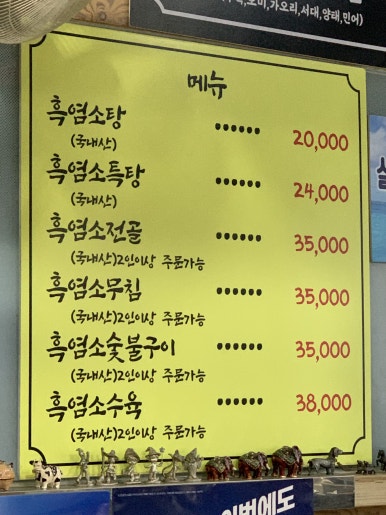 가오리,서대,양태,민어)
메뉴
흑염소탕 ...... 20,000
(국내산)
흑염소특탕 ...... 24,000
(국내산)
흑염소전골 ...... 35,000
(국내산)2인이상 주문가능
흑염소무침 ...... 35,000
(국내산)2인이상 주문가능
흑염소숯불구이 ...... 35,000
(국내산)2인이상 주문가능
흑염소수육 ...... 38,000
(국내산)2인이상 주문가능